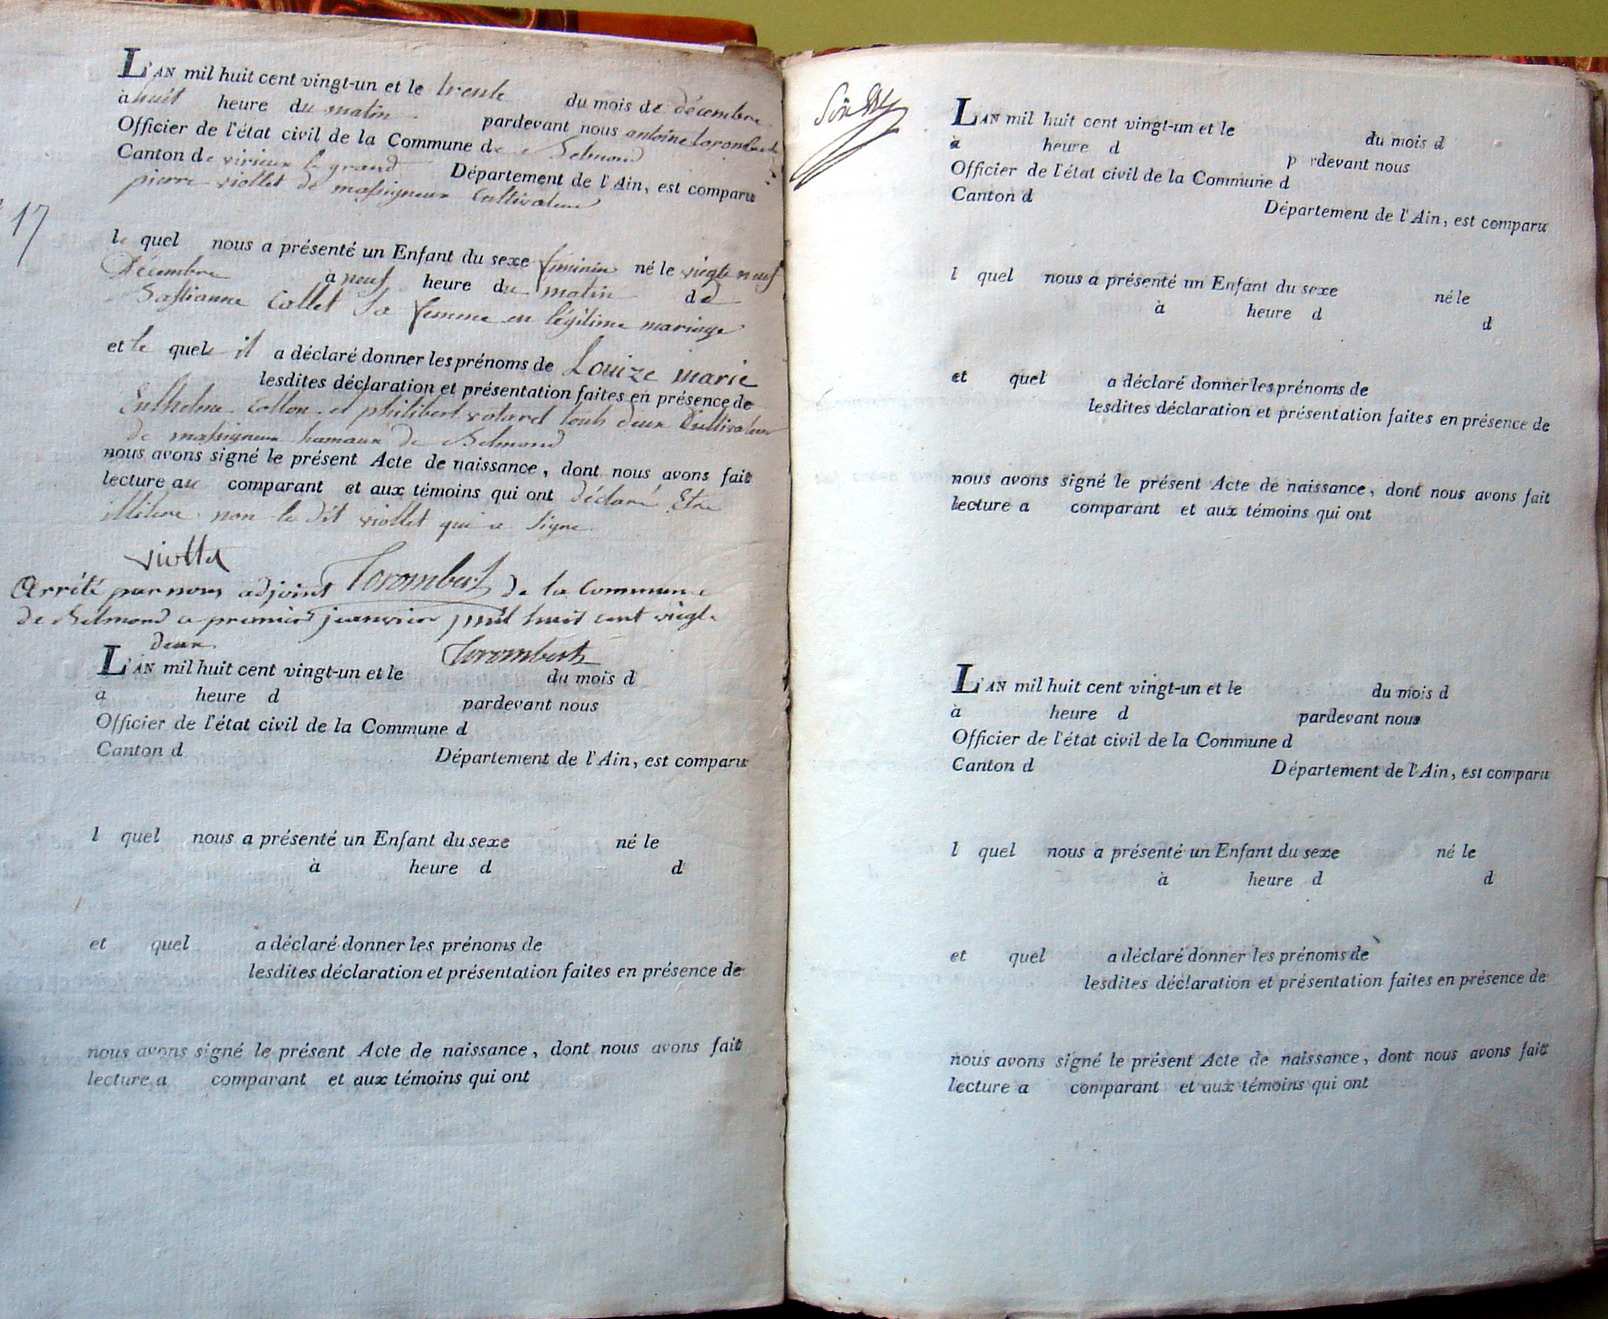 L'AN mil huit cent vingt-un et le trente du mois de décembre
à huit heure du matin pardevant nous antoine torombert
Officier de l'état civil de la Commune de Belmond
Canton de virieux le grand Département de l'Ain, est comparu
pierre viollet de massigneux Cultivateur
17
le quel nous a présenté un Enfant du sexe feminin né le vingte neuf
Décembre à neuf heure du matin de
Bastianne Collet Sa femme en légitime mariage
et le quel il a déclaré donner les prénoms de Louize marie
lesdites déclaration et présentation faites en présence de
Enthelme Collon et philibert volaret touts deux Cultivateur
de massigneux hamaux de Belmond
nous avons signé le présent Acte de naissance, dont nous avons fait
lecture au comparant et aux témoins qui ont déclaré Etre
illitere non le dit viollet qui a Signe
viollet
Arrêté par nous adjoint Torombert de la Commune
de Belmond a premier janvier mil huit cent vingt
deux
Torombert
L'AN mil huit cent vingt-un et le du mois d
à heure d pardevant nous
Officier de l'état civil de la Commune d
Canton d Département de l'Ain, est comparu
l quel nous a présenté un Enfant du sexe né le
à heure d d
et quel a déclaré donner les prénoms de
lesdites déclaration et présentation faites en présence de
nous avons signé le présent Acte de naissance, dont nous avons fait
lecture a comparant et aux témoins qui ont
L'AN mil huit cent vingt-un et le du mois d
à heure d pardevant nous
Officier de l'état civil de la Commune d
Canton d Département de l'Ain, est comparu
l quel nous a présenté un Enfant du sexe né le
à heure d d
et quel a déclaré donner les prénoms de
lesdites déclaration et présentation faites en présence de
nous avons signé le présent Acte de naissance, dont nous avons fait
lecture a comparant et aux témoins qui ont
L'AN mil huit cent vingt-un et le du mois d
à heure d pardevant nous
Officier de l'état civil de la Commune d
Canton d Département de l'Ain, est comparu
l quel nous a présenté un Enfant du sexe né le
à heure d d
et quel a déclaré donner les prénoms de
lesdites déclaration et présentation faites en présence de
nous avons signé le présent Acte de naissance, dont nous avons fait
lecture a comparant et aux témoins qui ont